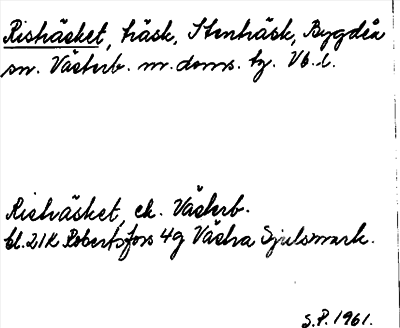 Rishäsket, träsk, Stenträsk, Bygdeå
sn. Västerb. m. doms. tg. Vb.l.
Rishäsket, ek. Västerb.
bl. 21K Robertsfors 4g Västra Sjulsmark.
S.P. 1961.